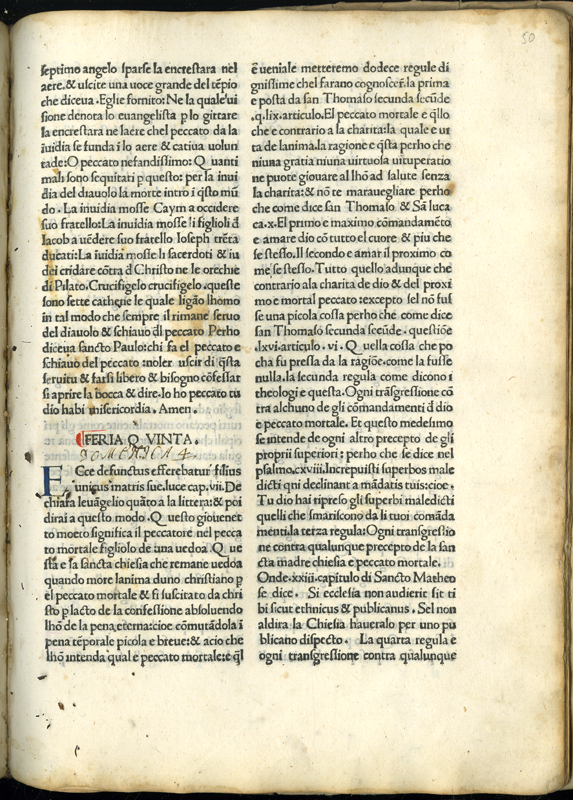 50
septimo angelo sparse la encrestara nel
aere.& uscite una uoce grande del tēpio
che diceua .Eglie fornito: Ne la quale ui
sione denota lo euangelista p lo gittare
la encrestara ne laere chel peccato da la
īuidia se funda ī lo aere & catiua uolun
tade: O peccato nefandissimo: Q uanti
mali sono sequitati p questo: per la inui
dia del diauolo la morte intro ī q̄sto mū
do . La inuidia mosse Caym a occidere
suo fratello: La inuidia mosse li figlioli đ
Iacob a uēdere suo fratello Ioseph trēta
ducati: La īuidia mosse li sacerdoti & iu
dei cridare cōtra đ Christo ne le orechie
di Pilato. Crucifigelo crucifigelo. queste
sono sette cathene le quale ligāo lhomo
in tal modo che sempre il rimane seruo
del diauolo & schiauo đl peccato Perho
diceua sancto Paulo: chi fa el peccato e
schiauo del peccato :noler uscir di q̄sta
seruitu & farsi libero & bisogno cōfessar
si aprire la bocca & dire. Io ho peccato tu
dio habi misericordia . Amen .
FERIA Q VINTA.
DOMENICA 4.
E Cce defunctus efferebatur filius
unigus matris sue.luce cap.vii. De
chiara leuāgelio quāto a la littera: & poi
dirai a questo modo . Q uesto giouenet
to morto significa il peccatore nel pecca
to mortale figliolo de una uedoa .Q ue
sta e la sancta chiesia che remane uedoa
quando more lanima duno christiano p
el peccato mortale & si suscitato da chri
sto p lacto de la confessione absoluendo
lhō de la pena eterna: cioe comutādola ī
pena tēporale picola e breue: & acio che
lhō intenda qual e peccato mortale: e q̄l
ē ueniale metteremo dodece regule di
gnissime chel farano cognoscer̄.la prima
e posta da san Thomaso secunda secūde
.q.lix.articulo. El peccato mortale e q̄llo
che e contrario a la charita: la quale e ui
ta de lanima. la ragione e q̄sta perho che
niuna gratia niuna uirtuo la uituperatio
ne puote giouare al lhō ad salute senza
la charita: & nō te marauegliare perho
che come dice san Thomaso & Sā luca
ca.x. El primo e maximo cōmandamēto
e amare dio cō tutto el cuore & piu che
se stesso. Il secondo e amar il proximo co
me se stesso. Tutto quello adunque che
contrario ala charita de dio & del proxi
mo e mortal peccato :excepto sel nō fus
se una picola cossa perho che come dice
san Thomaso secunda secūde . questiōe
.lxvi.articulo . vi . Q uella cossa che po
cha fu pressa da la ragiōe.come la fusse
nulla.la secunda regula come dicono i
theologi e questa. Ogni trāsgressione cō
tra alchuno de gli cōmandamenti đ dio
e peccato mortale. Et questo medesimo
se intende de ogni altro precepto de gli
proprii superiori : perho che se dice nel
psalmo.cxviii. Increpuisti superbos male
dicti qui declinant a mādatis tuis: cioe.
Tu dio hai ripreso gli superbi maledicti
quelli che smariscono da li tuoi comāda
menti.la terza regula: Ogni transgressio
ne contra qualunque precepto de la san
cta madre chiesia e peccato mortale.
Onde.xxiii.capitulo di Sancto Matheo
se dice . Si ecclesia non audierit sit ti
bi sicut ethnicus & publicanus . Sel non
aldira la Chiesia haueralo per uno pu
blicano dispecto . La quarta regula e
ogni transgressione contra qualunque